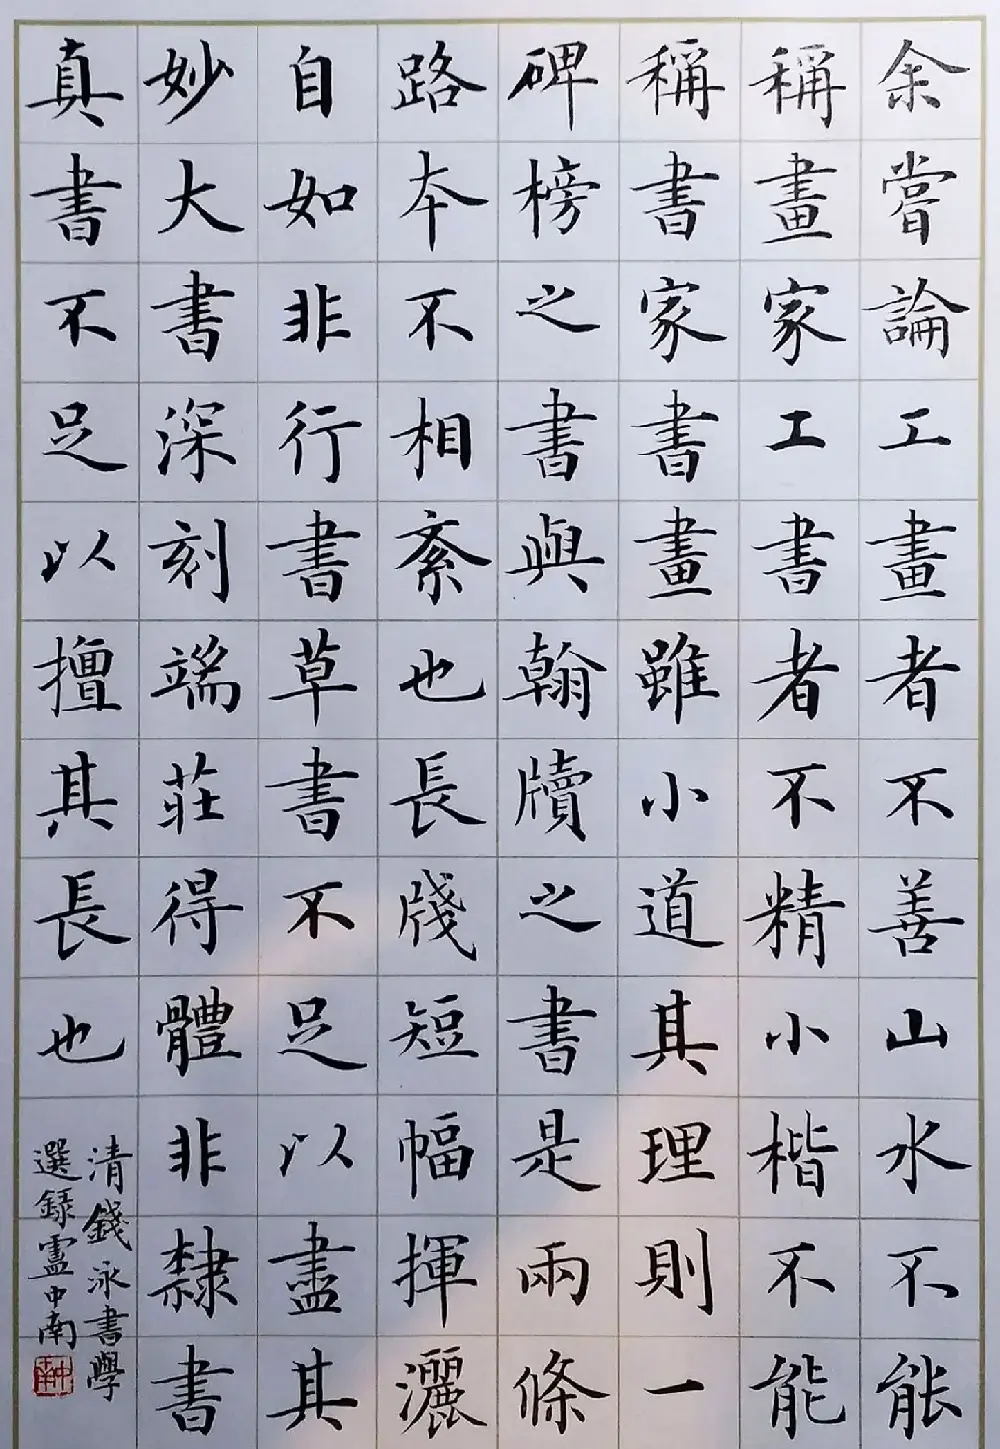 余嘗論工畫者不善山水不能
稱畫家工書者不精小楷不能
稱書家書畫雖小道其理則一
碑榜之書與翰牘之書是兩條
路本不相紊也長牋短幅揮灑
自如非行書草書不足以盡其
妙大書深刻端莊得體非隸書
真書不足以擅其長也
清錢泳書學
選錄盧中南